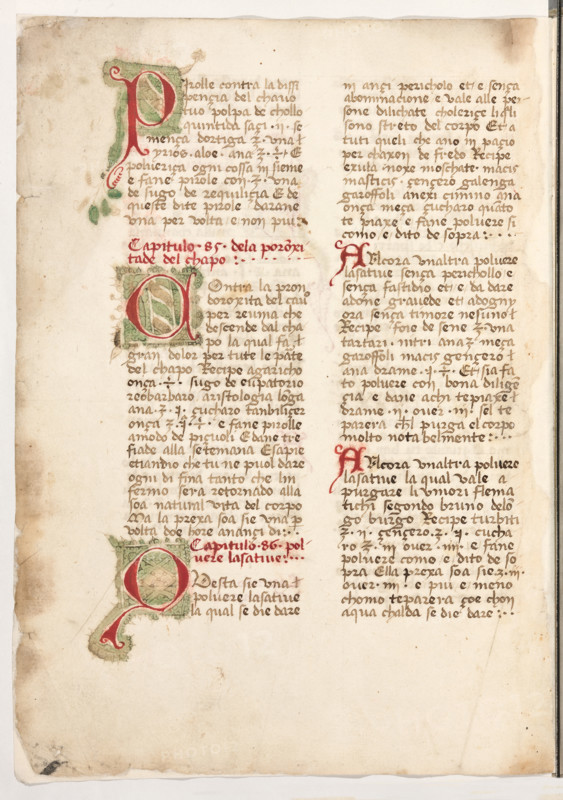 Pirolle contra la dissi
pencia del chavo
tuo polpa de chollo
quintida sagi · ii · se
mença dortiga ʒ · una ł
yrios · aloe · ana · ʒ · ÷ · E
polveriça ogni cossa in sieme
e fane pirole con · ʒ · una
de sugo de regulicia E de
queste dite pirole darane
una per volta e non piu:
Capitulo · 85 · dela poroxi
tade del chapo : · · · ·
Contra la pron
doroxita del cau
per reuma che
descende dal cha
po la qual fa ł
gran dolor per tute le pate
del chapo Recipe agaricho
onça · ÷ · sugo de eupatorio
reobarbaro aristologia lõga
ana · ʒ · ij · çucharo tanbiliçer
onça · ʒ · ij · ÷ · e fane pirolle
amodo de piçuoli E dane tre
fiade alla setemana Esapie
etiandio che tu ne puol dare
ogni di fina tanto che lin
fermo sera retornado alla
soa natural vita del corpo
Ma la prexa soa sie una p
volta doe hore ananci di: · ·
Capitulo · 86 · pol
vere lasative: · · ·
Questa sie una ł
polvere lasative
la qual se die dare
in ançi pericholo et e sença
abominacione e vale alle per
sone dilichate choleriçe
sono streto del corpo Et a
tuti queli che ano in pacio
per chaxon de fredo Recipe
exula noxe moschate · macis
masticis · gençero galenga
garoffoli anexi cimino ana
onça meça çucharo quato
te piaxe e fane polvere si
como e dito de sopra: · · ·
ANchora unaltra polvere
lasative sença perichollo e
sença fastidio et e da dare
adone gravede et adogny
ora sença timore nesuno ł
Recipe foie de sene ʒ · una
tartari · nitri ana ʒ meça
garoffoli macis gençero ł
ana drame · ij · ÷ · Et sia fa
to polvere con bona dilige
çia e dane achi te piaxe ł
drame · ii · over · iii · sel te
parera chel purga el corpo
molto nota belmente: · · ·
ANchora unaltra polvere
lasative la qual vale a
purgare li umori flema
tichi segondo bruno delõ
go burgo Recipe turbiti
ʒ · ii · gençero · ʒ · ij · cucha
ro ʒ · iii over · iiii · e fane
polvere como e dito de so
pra Ella prexa soa sie · ʒ · iii ·
over · iiii · e piu e meno
chomo te parera çoe chon
aqua chalda se die dare: · ·